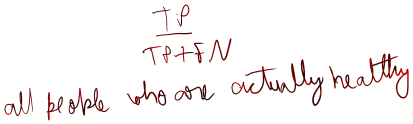 TP
TP+FN
all people who are actually healthy